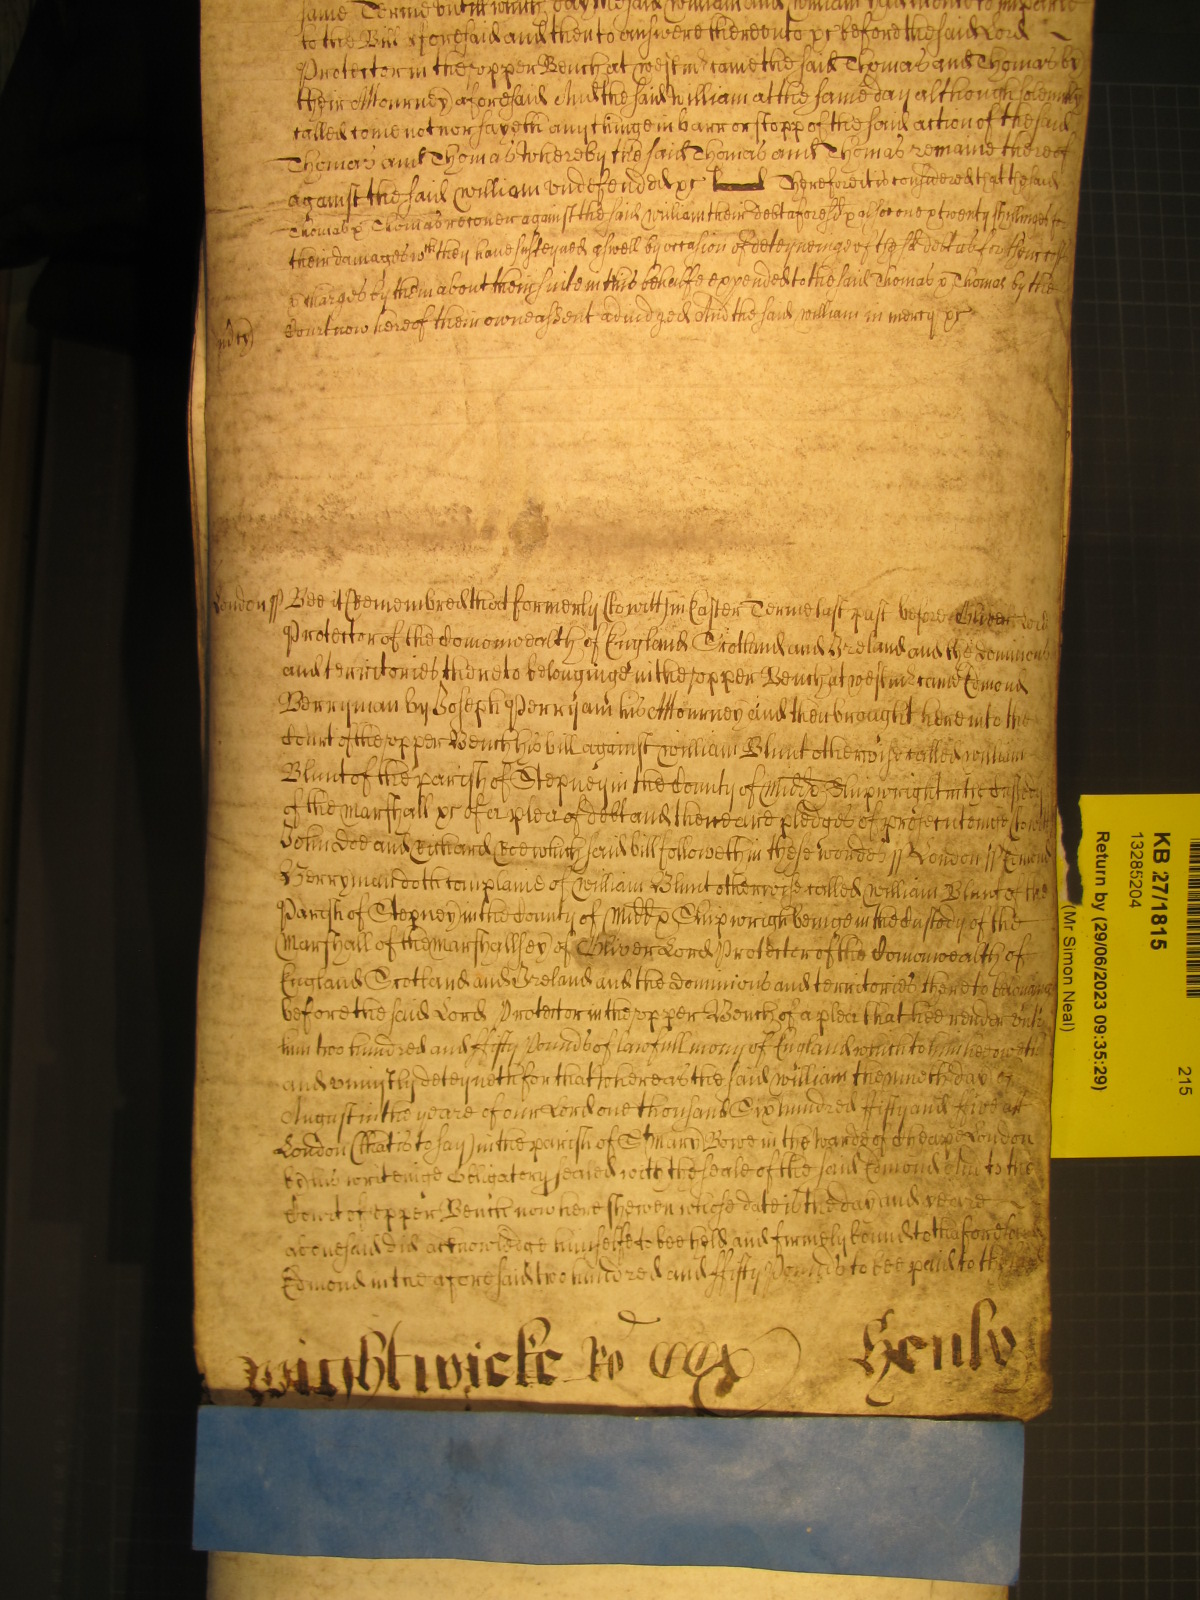 same Terme untill which day the said William and William had leave to imparle
to the Bill aforesaid and then to answere thereunto &c before the said Lord
Protector in the upper Bench at Westmr came the said Thomas and Thomas by
their Attourney aforesaid And the said William at the same day although solemnly
called come not nor sayeth any thinge in barr or stopp of the said action of the said
Thomas and Thomas whereby the said Thomas and Thomas remaine thereof
against the said William undefended &c Therefore it is considered that the said
Thomas & Thomas recover against the said William their debt aforesd & alsoe one & twenty shillings for
their damages wch they have susteyned aswell by occasion of deteyneinge of the sd debt as for their costs
& charges by them about their suite in this behalfe expended to the said Thomas & Thomas by the
Court now here of their owne assent adiudged And the said William in mercy &c
London ss Bee it Remembred that formerly (to witt) in Easter Terme last past before Oliver Lord
Protector of the Comonwealth of England Scotland and Ireland and the Dominions
and territories thereto belonginge in the upper Bench at Westmr came Edmond
Berryman by Joseph Perryam his Attourney and then brought here into the
Court of the upper Bench his bill against William Blunt otherwise called William
Blunt of the parish of Stepney in the County of Middx Shipwright in the Custody
of the Marshall &c of a plea of debt and there are pledges of prosecuteinge (to witt)
John Doe and Richard Roe which said bill followeth in these wordes ss London ss Edmond
Berryman doth complaine of William Blunt otherwise called William Blunt of the
Parish of Stepney in the County of Middx Shipwright beinge in the Custody of the
Marshall of the Marshallsey of Oliver Lord Protector of the Comonwealth of
England Scotland and Ireland and the Dominions and territories thereto belonginge
before the said Lord Protector in the upper Bench of a plea that hee render unto
him two hundred and fifty Pounds of lawfull mony of England which to him he oweth
and uniustly deteyneth for that whereas the said William the nineth day of
August in the yeare of our Lord one thousand Six hundred fifty and five att
London (that is to say) in the parish of St Mary Bowe in the warde of Cheape London
by his writeinge Obligatory sealed with the seale of the said Edmond And to the
Court of upper Bench now here shewen whose date is the day and yeare
abovesaid did acknowledge himselfe to bee held and firmely bound to thaforesaid
Edmond in the aforesaid two hundred and fifty Pounds to bee paid to the said
Wightwicke Ro CCCX Henly
KB 27/1815
13285204
Return by (29/06/2023 09:35:29)
(Mr Simon Neal)
215